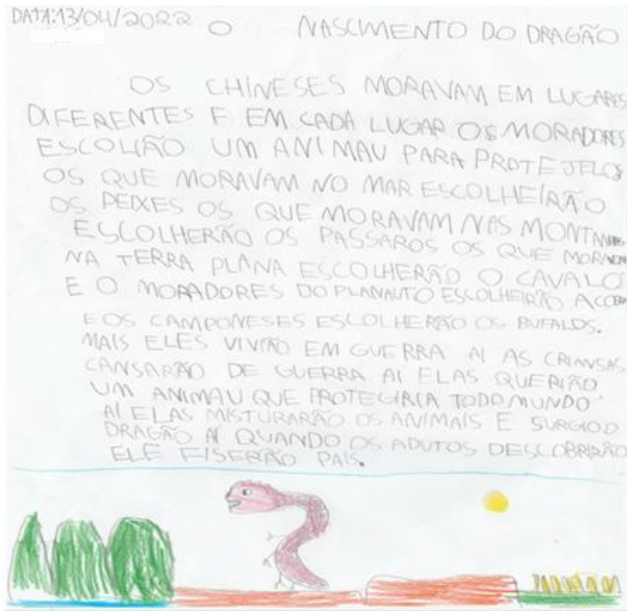 DATA:13/04/2022 O NASCIMENTO DO DRAGÃO
OS CHINESES MORAVAM EM LUGARES
DIFERENTES E EM CADA LUGAR OS MORADORES
ESCOLHÃO UM ANIMAU PARA PROTEJELOS
OS QUE MORAVAM NO MAR ESCOLHEIRÃO
OS PEIXES OS QUE MORAVAM NAS MONTANHAS
ESCOLHERÃO OS PASSAROS OS QUE MORAVAM
NA TERRA PLANA ESCOLHERÃO O CAVALO
E O MORADORES DO PLANAUTO ESCOLHEIRÃO A COBRA
E OS CAMPONESES ESCOLHERÃO OS BUFALOS.
MAIS ELES VIVIÃO EM GUERRA AI AS CRIANSAS
CANSARÃO DE GUERRA AI ELAS QUERIÃO
UM ANIMAU QUE PROTEGIRIA TODO MUNDO
AI ELAS MISTURARÃO OS ANIMAIS E SURGIO O
DRAGÃO AI QUANDO OS ADUTOS DESCOBRIRÃO
ELE FISERÃO PAIS.